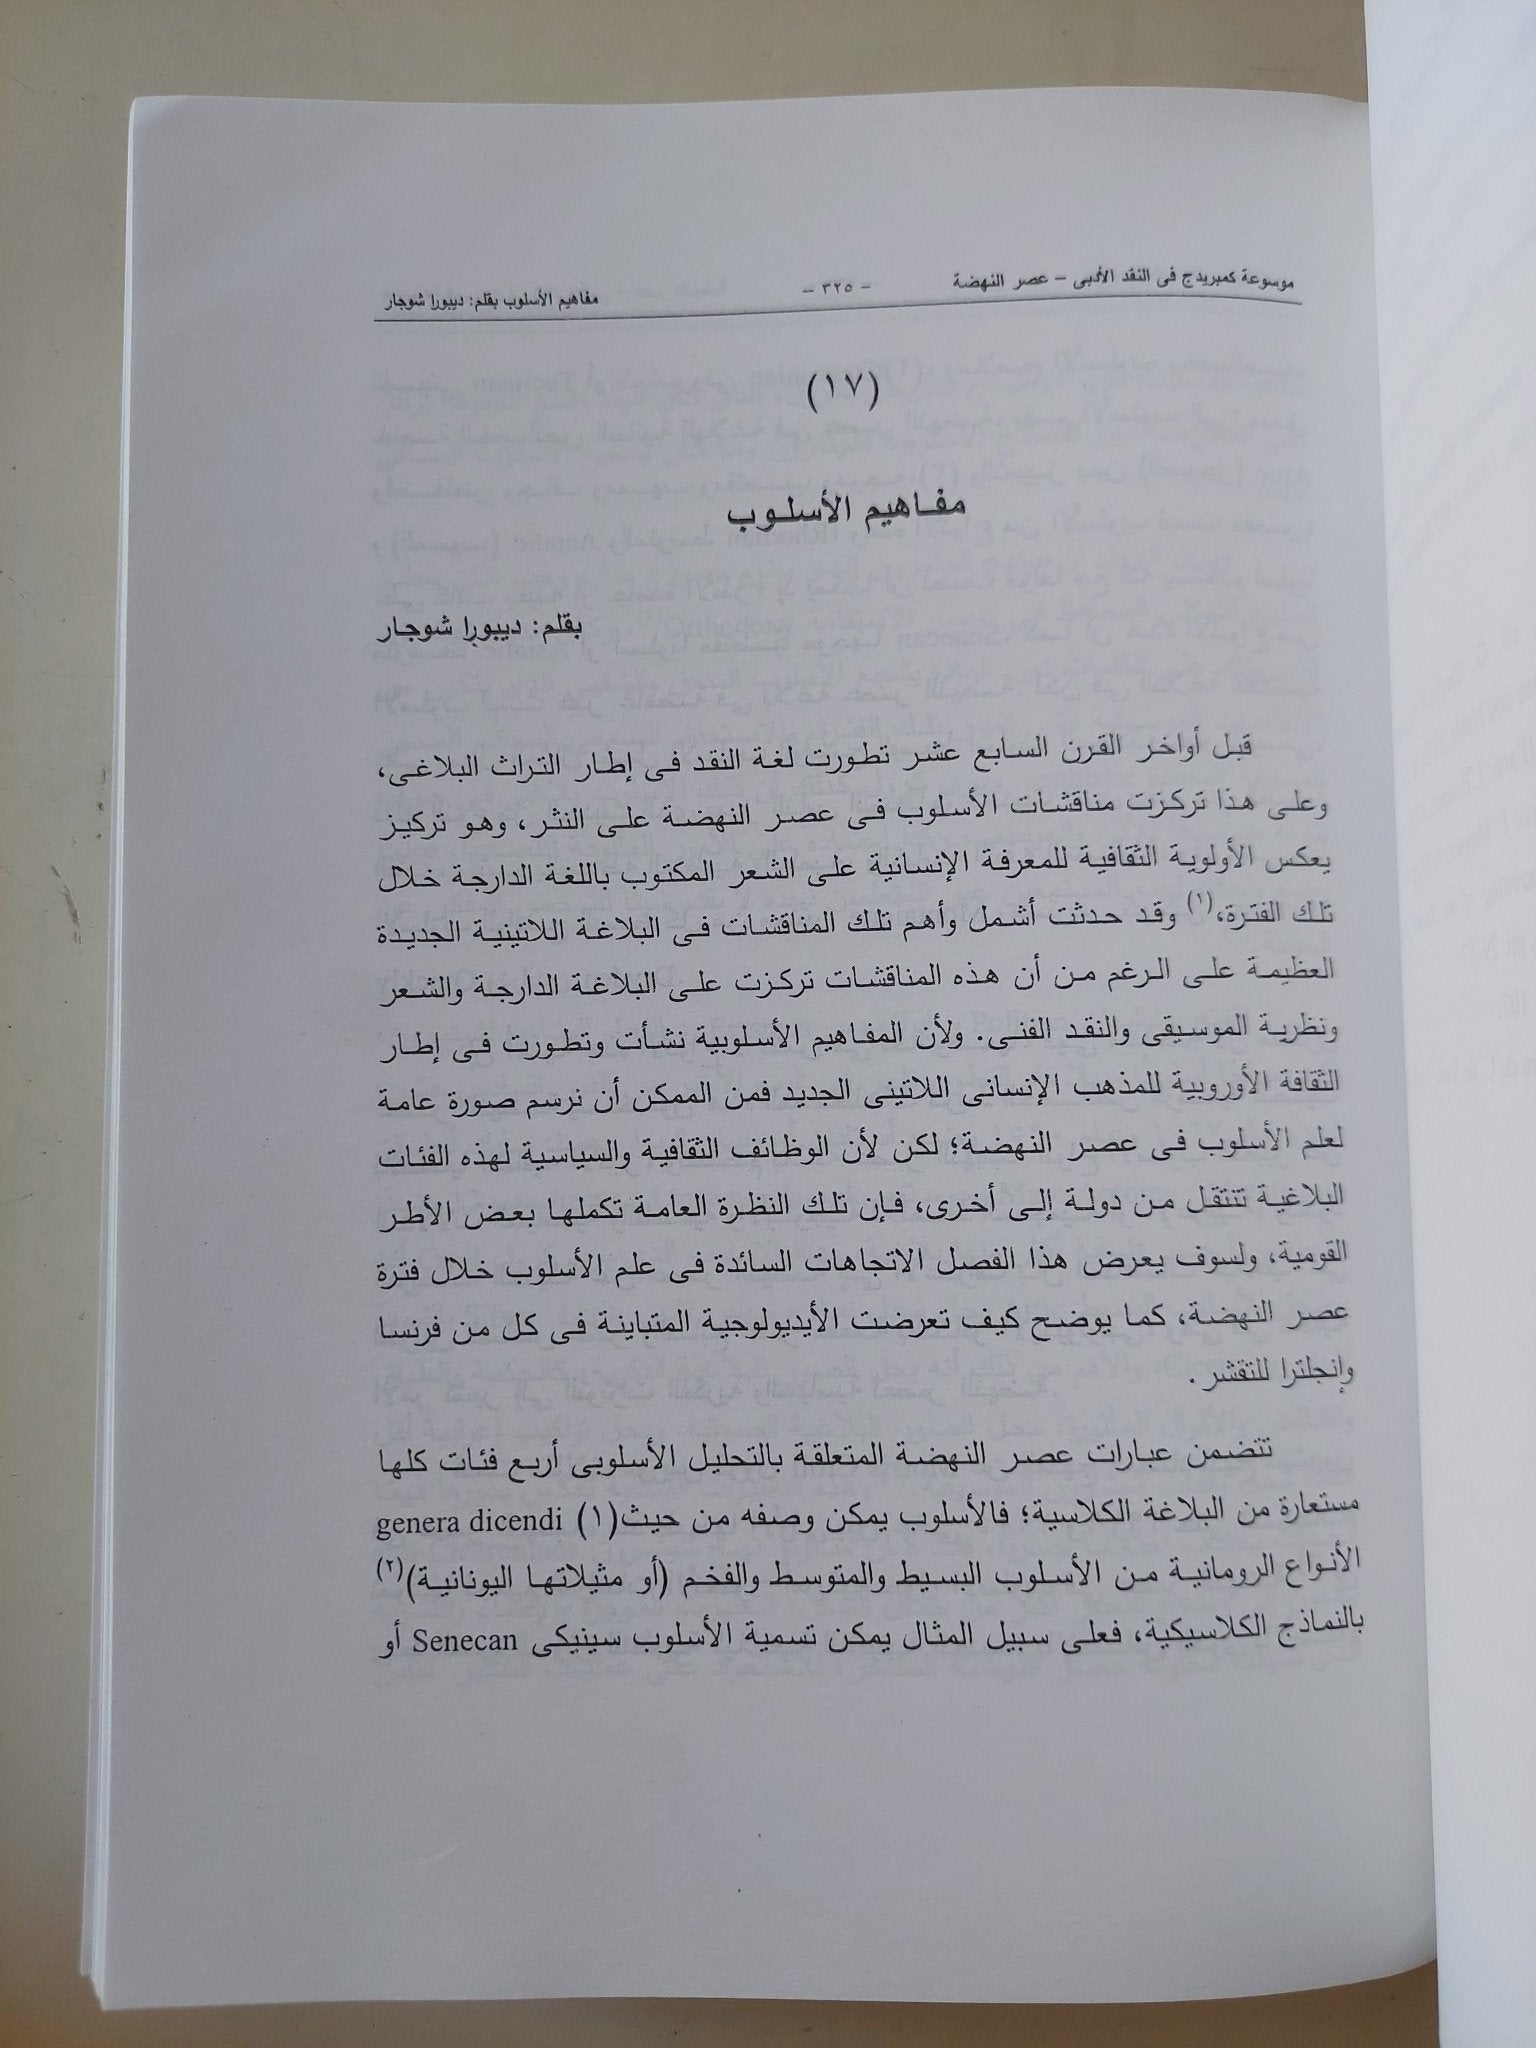 موسوعة كمبريدج فى النقد الأدبى – عصر النهضة – ٣٢٥ – مفاهيم الأسلوب بقلم: ديبورا شوجار
(١٧)
مفاهيم الأسلوب
بقلم: ديبورا شوجار
قبل أواخر القرن السابع عشر تطورت لغة النقد فى إطار التراث البلاغى،
وعلى هذا تركزت مناقشات الأسلوب فى عصر النهضة على النثر، وهو تركيز
يعكس الأولوية الثقافية للمعرفة الإنسانية على الشعر المكتوب باللغة الدارجة خلال
تلك الفترة،(١) وقد حدثت أشمل وأهم تلك المناقشات فى البلاغة اللاتينية الجديدة
العظيمة على الرغم من أن هذه المناقشات تركزت على البلاغة الدارجة والشعر
ونظرية الموسيقى والنقد الفنى. ولأن المفاهيم الأسلوبية نشأت وتطورت فى إطار
الثقافة الأوروبية للمذهب الإنسانى اللاتينى الجديد فمن الممكن أن نرسم صورة عامة
لعلم الأسلوب فى عصر النهضة؛ لكن لأن الوظائف الثقافية والسياسية لهذه الفئات
البلاغية تنتقل من دولة إلى أخرى، فإن تلك النظرة العامة تكملها بعض الأطر
القومية، ولسوف يعرض هذا الفصل الاتجاهات السائدة فى علم الأسلوب خلال فترة
عصر النهضة، كما يوضح كيف تعرضت الأيديولوجية المتباينة فى كل من فرنسا
وإنجلترا للتقشر .
تتضمن عبارات عصر النهضة المتعلقة بالتحليل الأسلوبى أربع فئات كلها
مستعارة من البلاغة الكلاسية؛ فالأسلوب يمكن وصفه من حيث(١) genera dicendi
الأنواع الرومانية من الأسلوب البسيط والمتوسط والفخم (أو مثيلاتها اليونانية)(٢)
بالنماذج الكلاسيكية، فعلى سبيل المثال يمكن تسمية الأسلوب سينيكى Senecan أو